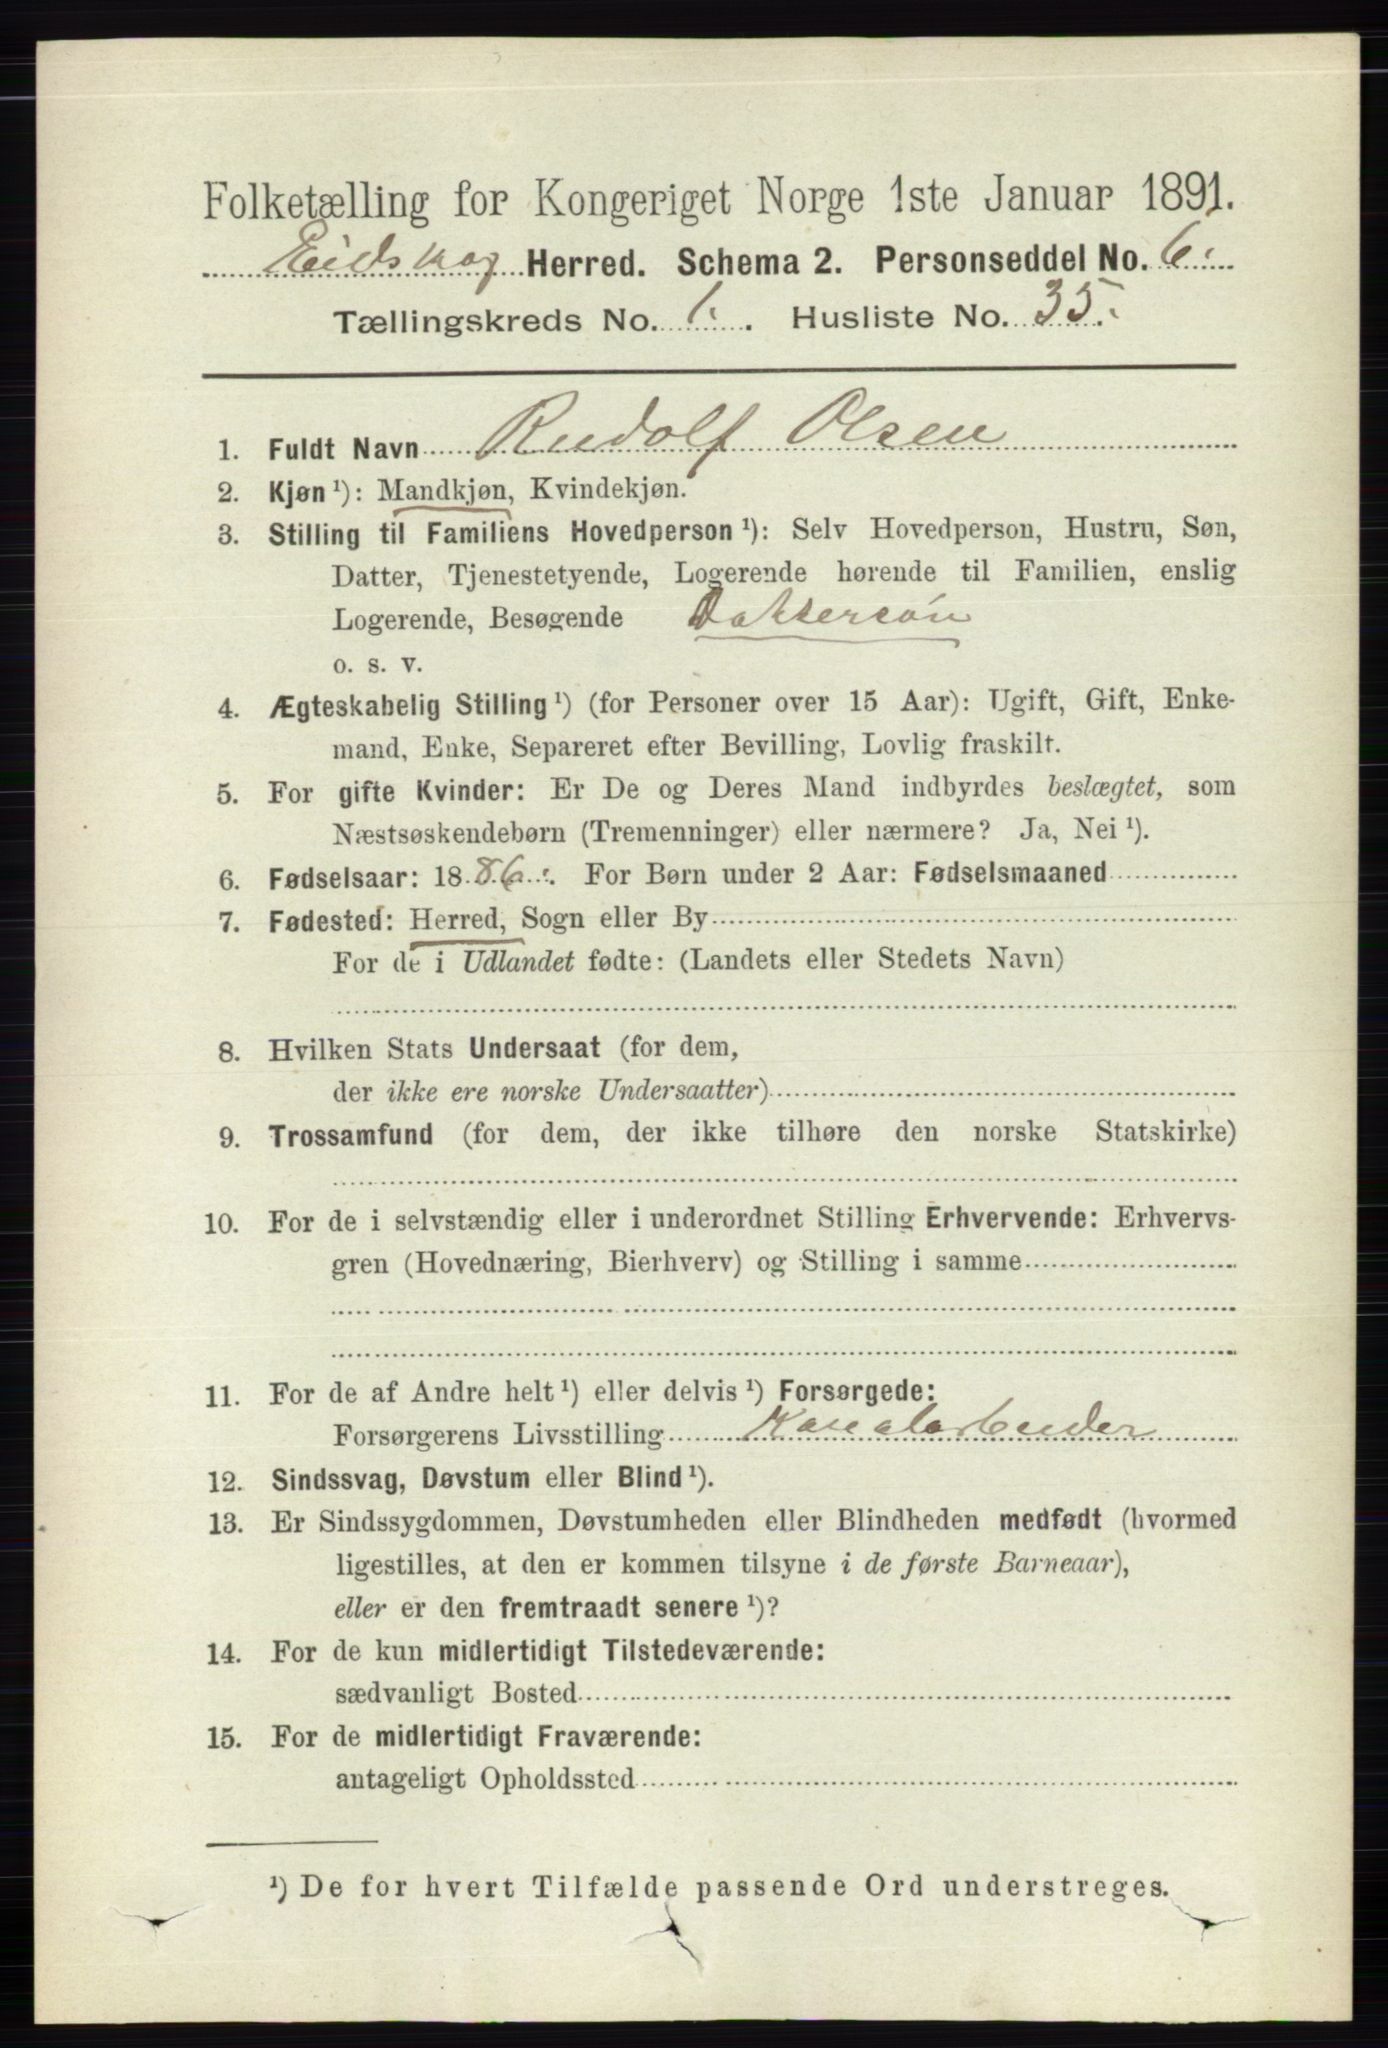 Folketælling for Kongeriget Norge 1ste Januar 1891.
Eidskog Herred. Schema 2. Personseddel No. 6.
Tællingskreds No. 1. Husliste No. 35.
1. Fuldt Navn Rudolf Olsen
2. Kjøn ¹): Mandkjøn, Kvindekjøn.
3. Stilling til Familiens Hovedperson ¹): Selv Hovedperson, Hustru, Søn,
Datter, Tjenestetyende, Logerende hørende til Familien, enslig
Logerende, Besøgende Dattersøn
o. s. v.
4. Ægteskabelig Stilling ¹) (for Personer over 15 Aar): Ugift, Gift, Enke-
mand, Enke, Separeret efter Bevilling, Lovlig fraskilt.
5. For gifte Kvinder: Er De og Deres Mand indbyrdes beslægtet, som
Næstsøskendebørn (Tremenninger) eller nærmere? Ja, Nei ¹).
6. Fødselsaar: 1886. For Børn under 2 Aar: Fødselsmaaned
7. Fødested: Herred, Sogn eller By
For de i Udlandet fødte: (Landets eller Stedets Navn)
8. Hvilken Stats Undersaat (for dem,
der ikke ere norske Undersaatter)
9. Trossamfund (for dem, der ikke tilhøre den norske Statskirke)
10. For de i selvstændig eller i underordnet Stilling Erhvervende: Erhvervs-
gren (Hovednæring, Bierhverv) og Stilling i samme
11. For de af Andre helt ¹) eller delvis ¹) Forsørgede:
Forsørgerens Livsstilling Kanalarbeider
12. Sindssvag, Døvstum eller Blind ¹).
13. Er Sindssygdommen, Døvstumheden eller Blindheden medfødt (hvormed
ligestilles, at den er kommen tilsyne i de første Barneaar),
eller er den fremtraadt senere ¹)?
14. For de kun midlertidigt Tilstedeværende:
sædvanligt Bosted
15. For de midlertidigt Fraværende:
antageligt Opholdssted
¹) De for hvert Tilfælde passende Ord understreges.